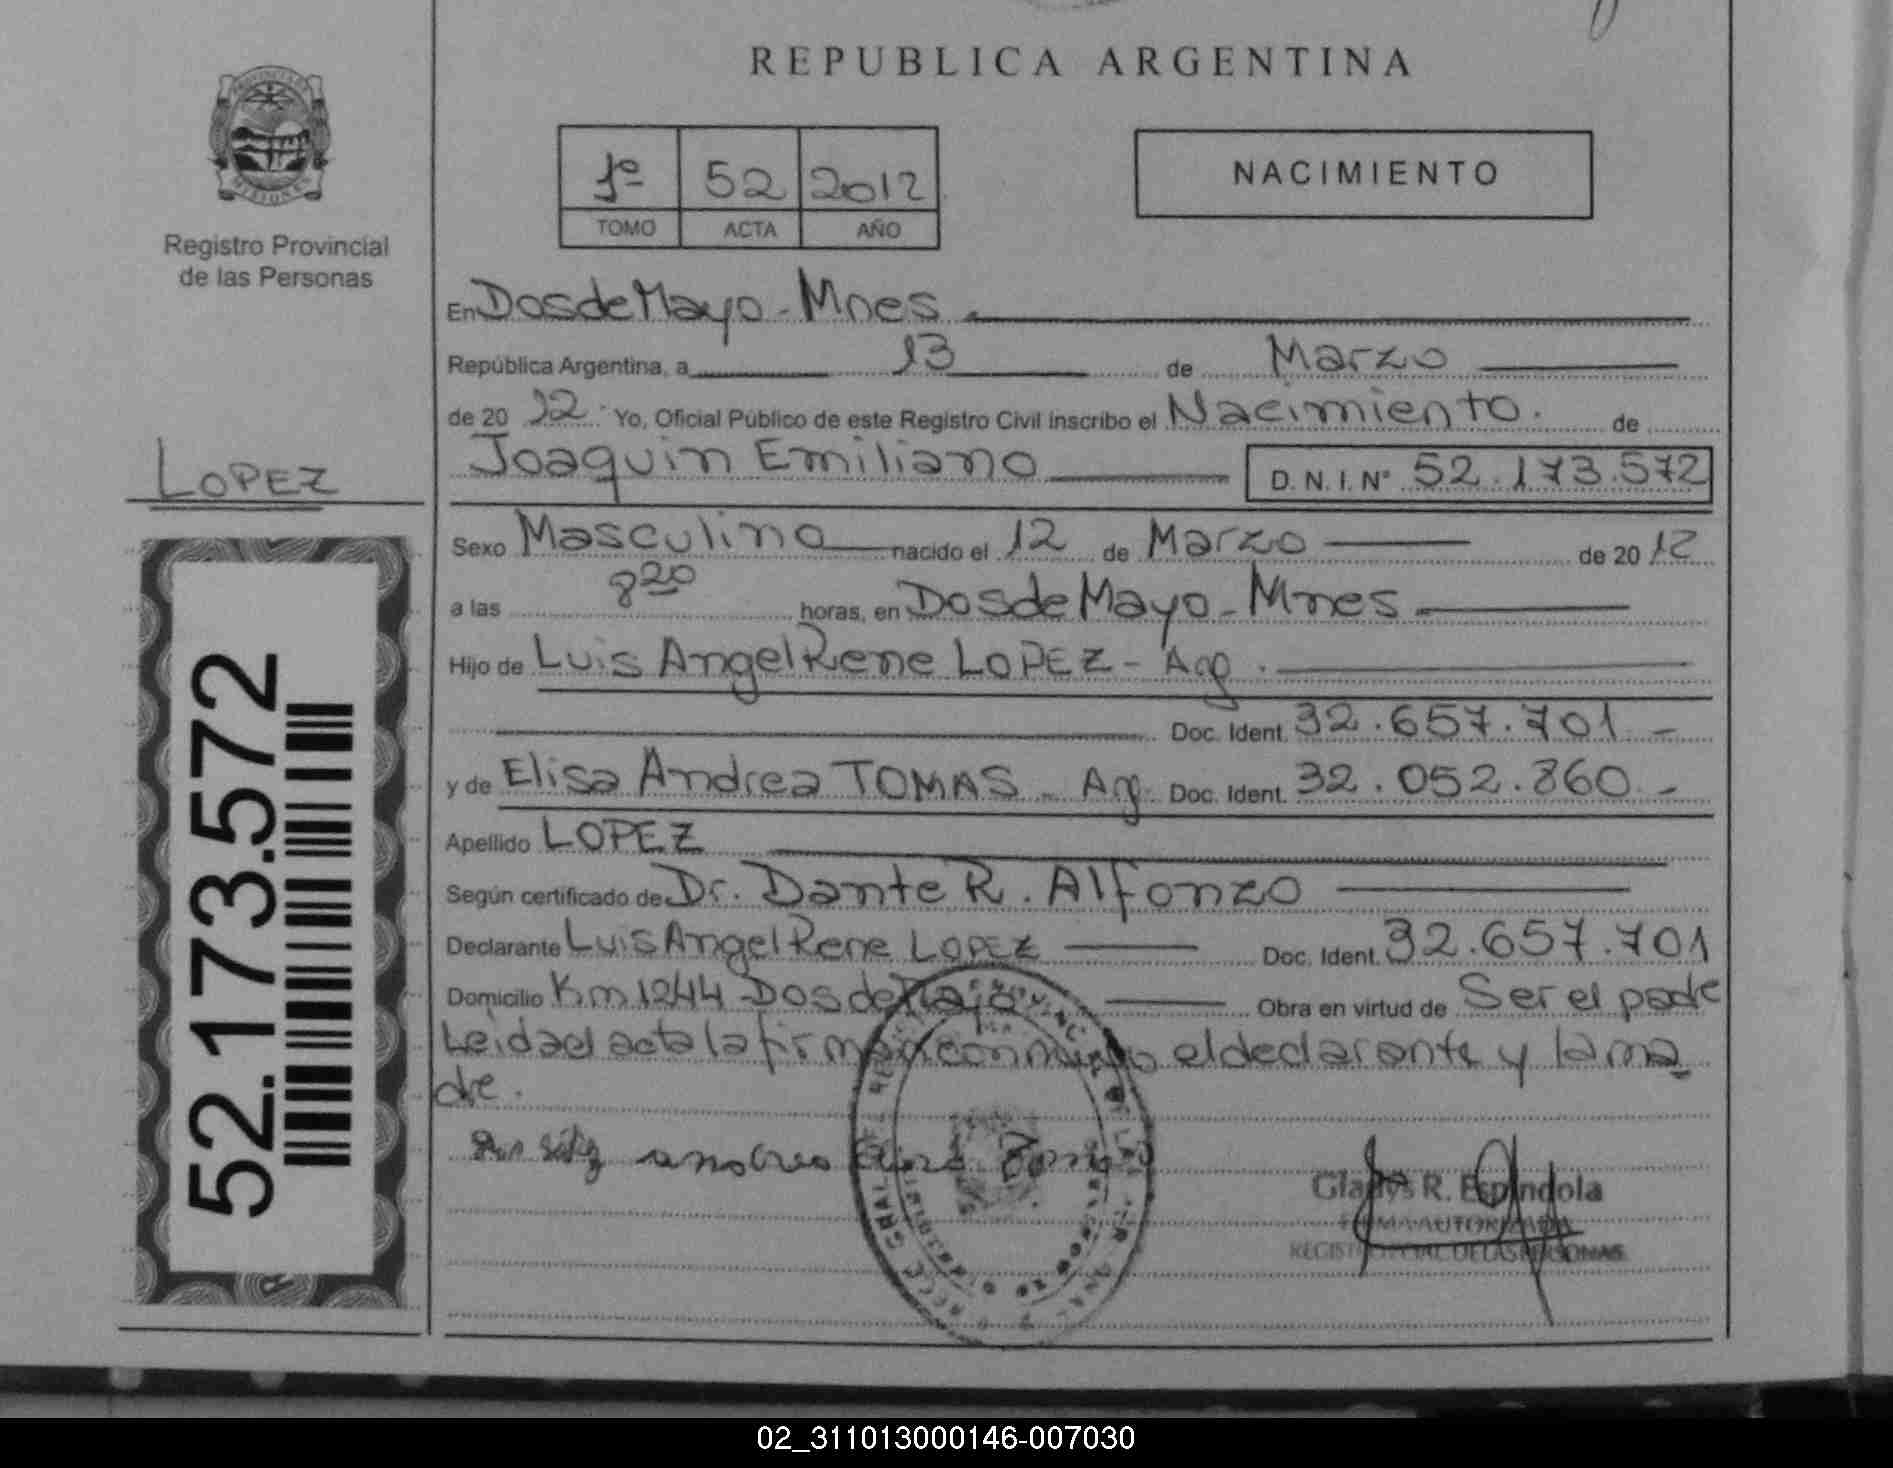 REPUBLICA ARGENTINA
PROVINCIA DE
MISIONES
Registro Provincial
de las Personas
1º 52 2012
TOMO ACTA AÑO
NACIMIENTO
En Dos de Mayo - Mnes
República Argentina, a 13 de Marzo
de 20 12. Yo, Oficial Público de este Registro Civil inscribo el Nacimiento. de
LOPEZ
Joaquin Emiliano D. N. I. Nº 52.173.572
Sexo Masculino nacido el 12 de Marzo de 20 12
a las 8 20 horas, en Dos de Mayo - Mnes
Hijo de Luis Angel Rene LOPEZ - Arg.
Doc. Ident. 32.657.701 -
y de Elisa Andrea TOMAS - Arg. Doc. Ident. 32.052.860 -
Apellido LOPEZ
Según certificado de Dr. Dante R. Alfonzo
Declarante Luis Angel Rene LOPEZ Doc. Ident. 32.657.701
Domicilio Km 1244 Dos de Mayo Obra en virtud de Ser el padre
Leida el acta la firman conmigo el declarante y la ma
dre.
52.173.572
Gladys R. Espindola
FIRMA AUTORIZADA
REGISTRO PCIAL DE LAS PERSONAS
02_311013000146-007030